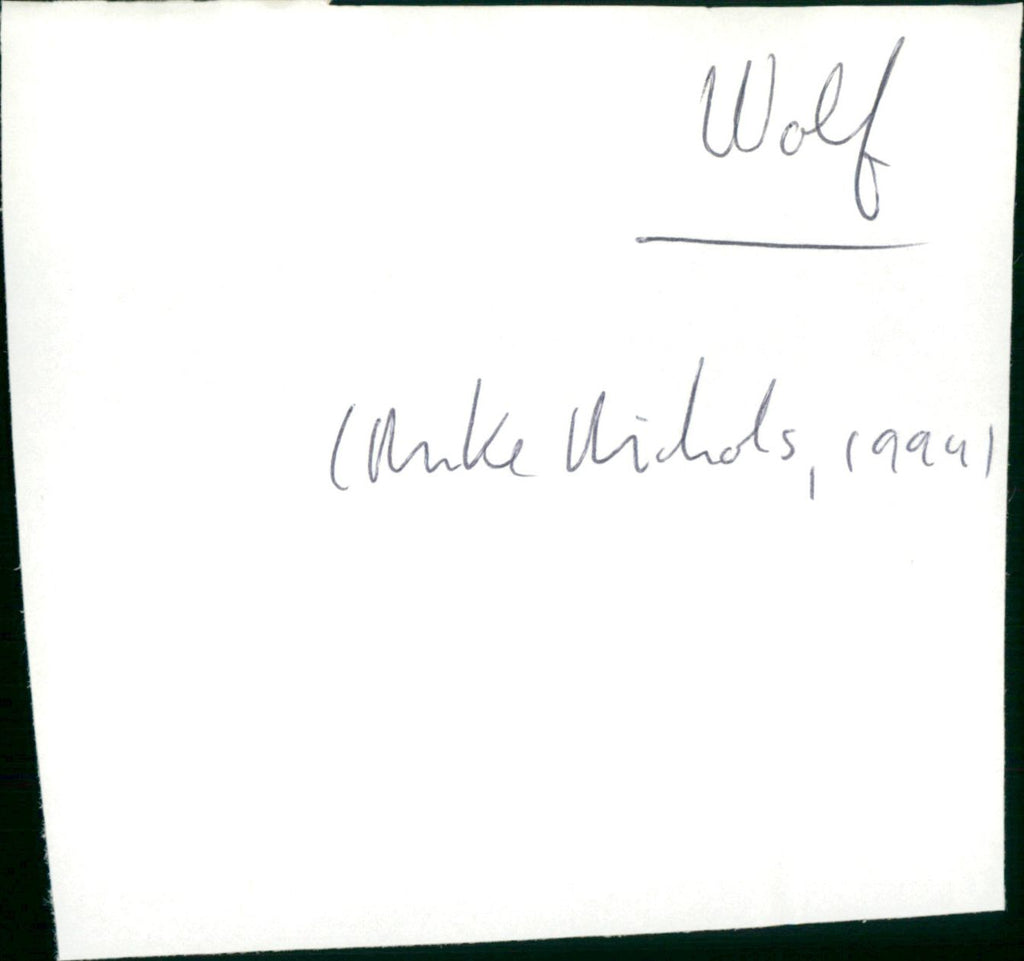 Wolf
(Mike Nichols, 1994)